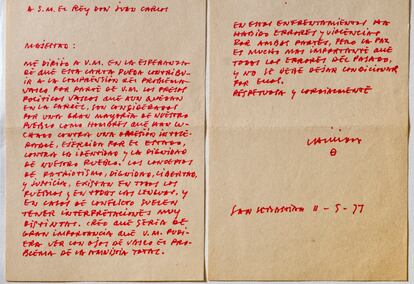 A S.M. EL REY DON JUAN CARLOS
MAJESTAD:
ME DIRIJO A V.M. EN LA ESPERANZA
DE QUE ESTA CARTA PUEDA CONTRIBU-
IR A LA COMPRENSIÓN DEL PROBLEMA
VASCO POR PARTE DE V.M. LOS PRESOS
POLÍTICOS VASCOS QUE AUN QUEDAN
EN LA CÁRCEL, SON CONSIDERADOS
POR UNA GRAN MAYORÍA DE NUESTRO
PUEBLO COMO HOMBRES QUE HAN LU-
CHADO CONTRA UNA OPRESIÓN INTOLE-
RABLE, EJERCIDA POR EL ESTADO,
CONTRA LA IDENTIDAD Y LA DIGNIDAD
DE NUESTRO PUEBLO. LOS CONCEPTOS
DE PATRIOTISMO, DIGNIDAD, LIBERTAD,
Y JUSTICIA, EXISTEN EN TODOS LOS
PUEBLOS Y EN TODAS LAS LENGUAS. Y
EN CASOS DE CONFLICTO SUELEN
TENER INTERPRETACIONES MUY
DISTINTAS. CREO QUE SERÍA DE
GRAN IMPORTANCIA QUE V.M. PUDIE-
RA VER CON OJOS DE VASCO ESTE PRO-
BLEMA DE LA AMNISTÍA TOTAL.
EN ESTOS ENFRENTAMIENTOS HA
HABIDO ERRORES Y VIOLENCIAS
POR AMBAS PARTES, PERO LA PAZ
ES MUCHO MAS IMPORTANTE QUE
TODOS LOS ERRORES DEL PASADO,
Y NO SE DEBE DEJAR CONDICIONAR
POR ELLOS.
RESPETUOSA Y CORDIALMENTE
SAN SEBASTIAN 11-5-77